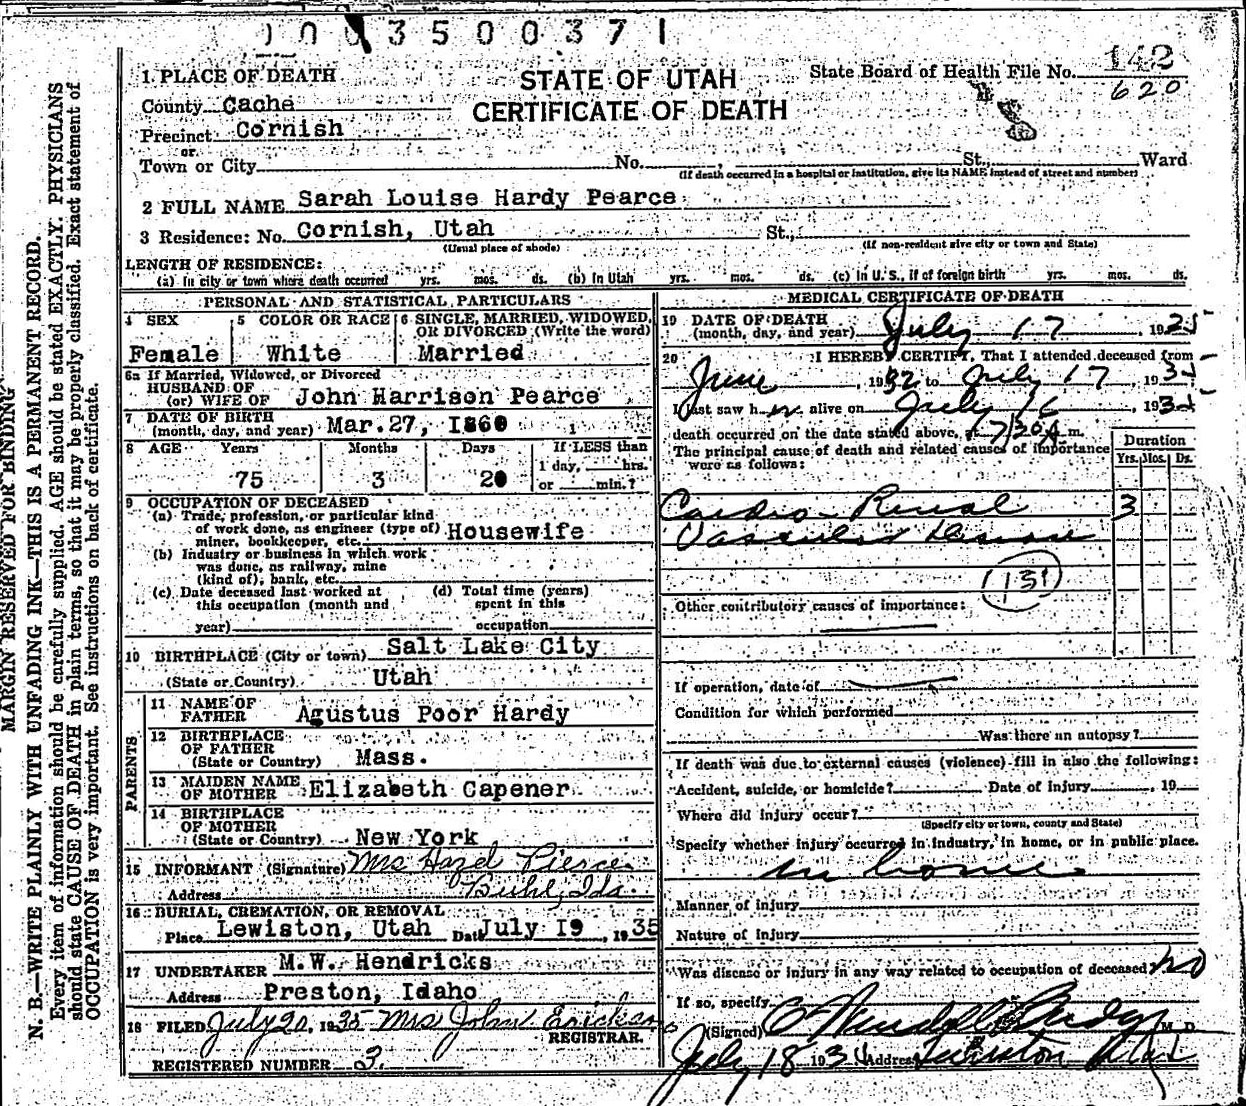 003500371
STATE OF UTAH
CERTIFICATE OF DEATH
State Board of Health File No. 142
620
1. PLACE OF DEATH
County Cache
Precinct Cornish
or
Town or City No. , St., Ward
(If death occurred in a hospital or institution, give its NAME instead of street and number)
2 FULL NAME Sarah Louise Hardy Pearce
3 Residence: No. Cornish, Utah St.,
(Usual place of abode) (If non-resident give city or town and State)
LENGTH OF RESIDENCE:
(a) In city or town where death occurred yrs. mos. ds. (b) In Utah yrs. mos. ds. (c) In U. S., if of foreign birth yrs. mos. ds.
PERSONAL AND STATISTICAL PARTICULARS
4 SEX
Female
5 COLOR OR RACE
White
6 SINGLE, MARRIED, WIDOWED,
OR DIVORCED (Write the word)
Married
6a If Married, Widowed, or Divorced
HUSBAND OF
(or) WIFE OF John Harrison Pearce
7 DATE OF BIRTH
(month, day, and year) Mar. 27, 1860
8 AGE Years Months Days If LESS than
75 3 20 1 day, hrs.
or min.?
9 OCCUPATION OF DECEASED
(a) Trade, profession, or particular kind
of work done, as engineer (type of)
miner, bookkeeper, etc. Housewife
(b) Industry or business in which work
was done, as railway, mine
(kind of), bank, etc.
(c) Date deceased last worked at
this occupation (month and
year)
(d) Total time (years)
spent in this
occupation
10 BIRTHPLACE (City or town) Salt Lake City
(State or Country) Utah
PARENTS
11 NAME OF
FATHER Agustus Poor Hardy
12 BIRTHPLACE
OF FATHER
(State or Country) Mass.
13 MAIDEN NAME
OF MOTHER Elizabeth Capener
14 BIRTHPLACE
OF MOTHER
(State or Country) New York
15 INFORMANT (Signature) Mrs Hazel Pierce
Address Buhl, Ida.
16 BURIAL, CREMATION, OR REMOVAL
Place Lewiston, Utah Date July 19, 1935
17 UNDERTAKER M.W. Hendricks
Address Preston, Idaho
18 FILED July 20, 1935 Mrs John Erickson
REGISTRAR.
REGISTERED NUMBER 3.
MEDICAL CERTIFICATE OF DEATH
19 DATE OF DEATH
(month, day, and year) July 17, 1935
20 I HEREBY CERTIFY, That I attended deceased from
June, 1932 to July 17, 1935
I last saw her alive on July 16, 1935
death occurred on the date stated above, at 7/30 A m.
The principal cause of death and related causes of importance
were as follows:
Duration
Yrs. Mos. Ds.
Cardio-Renal 3
Vascular Disease
131
Other contributory causes of importance:
If operation, date of
Condition for which performed
Was there an autopsy?
If death was due to external causes (violence) fill in also the following:
Accident, suicide, or homicide? Date of injury , 19
Where did injury occur?
(Specify city or town, county and State)
Specify whether injury occurred in industry, in home, or in public place.
in home
Manner of injury
Nature of injury
Was disease or injury in any way related to occupation of deceased No
If so, specify
(Signed) M. D.
July 18 193 Address Lewiston Utah
MARGIN RESERVED FOR BINDING
N. B.—WRITE PLAINLY WITH UNFADING INK—THIS IS A PERMANENT RECORD.
Every item of information should be carefully supplied. AGE should be stated EXACTLY. PHYSICIANS
should state CAUSE OF DEATH in plain terms, so that it may be properly classified. Exact statement of
OCCUPATION is very important. See instructions on back of certificate.